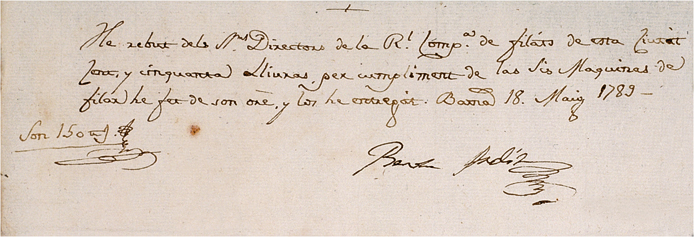 He rebut dels S.rs Directors de la R.l Comp.a de filats de esta Ciutat
Cent, y cinquanta Lliuras, per cumpliment de las Sis Maquinas de
filar he fet de son orde, y los he entregat. Barna 18. Maig 1789—
Son 150